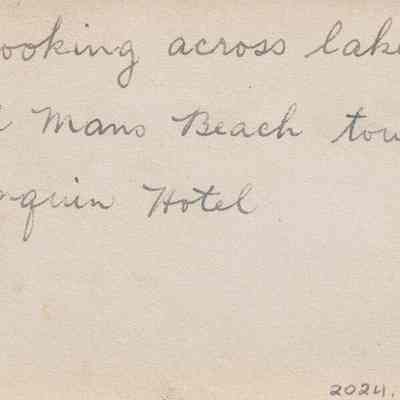 ooking across lake
Mans Beach tow
nquin Hotel
2024.